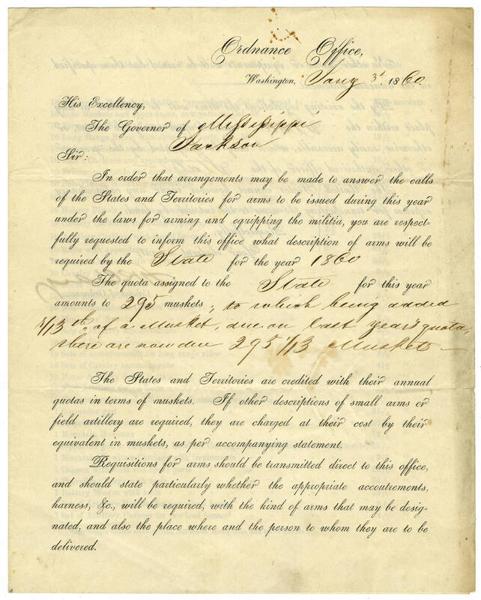 Ordnance Office,
Washington, Jany 3d 1860
His Excellency,
The Governor of Mississippi
Jackson
Sir:
In order that arrangements may be made to answer the calls
of the States and Territories for arms to be issued during this year
under the laws for arming and equipping the militia, you are respect-
fully requested to inform this office what description of arms will be
required by the State for the year 1860
The quota assigned to the State for this year
amounts to 295 muskets; to which being added
1/13th of a Musket, due on last year's quota,
there are now due 295 1/13 Muskets—
The States and Territories are credited with their annual
quotas in terms of muskets. If other descriptions of small arms or
field artillery are required, they are charged at their cost by their
equivalent in muskets, as per accompanying statement.
Requisitions for arms should be transmitted direct to this office,
and should state particularly whether the appropriate accoutrements,
harness, &c., will be required, with the kind of arms that may be desig-
nated, and also the place where and the person to whom they are to be
delivered.